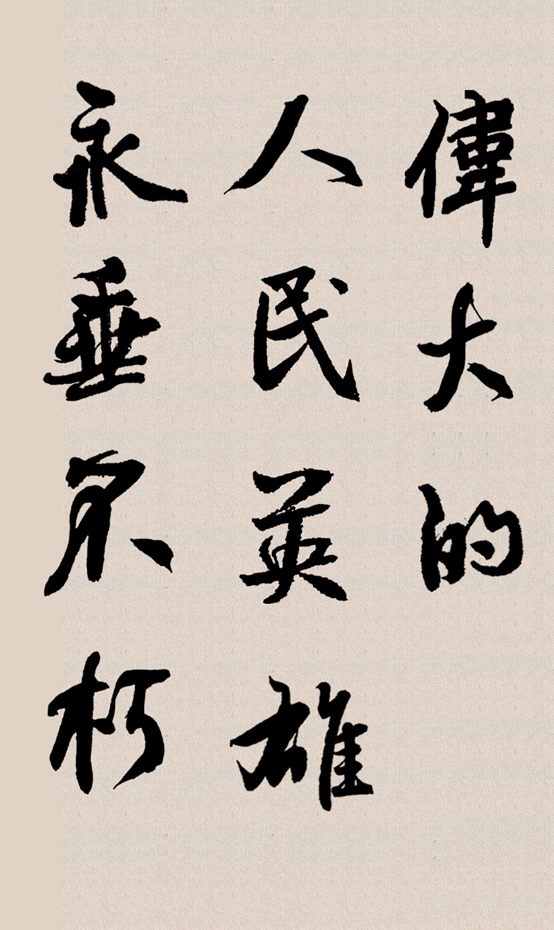 偉大的
人民英雄
永垂不朽